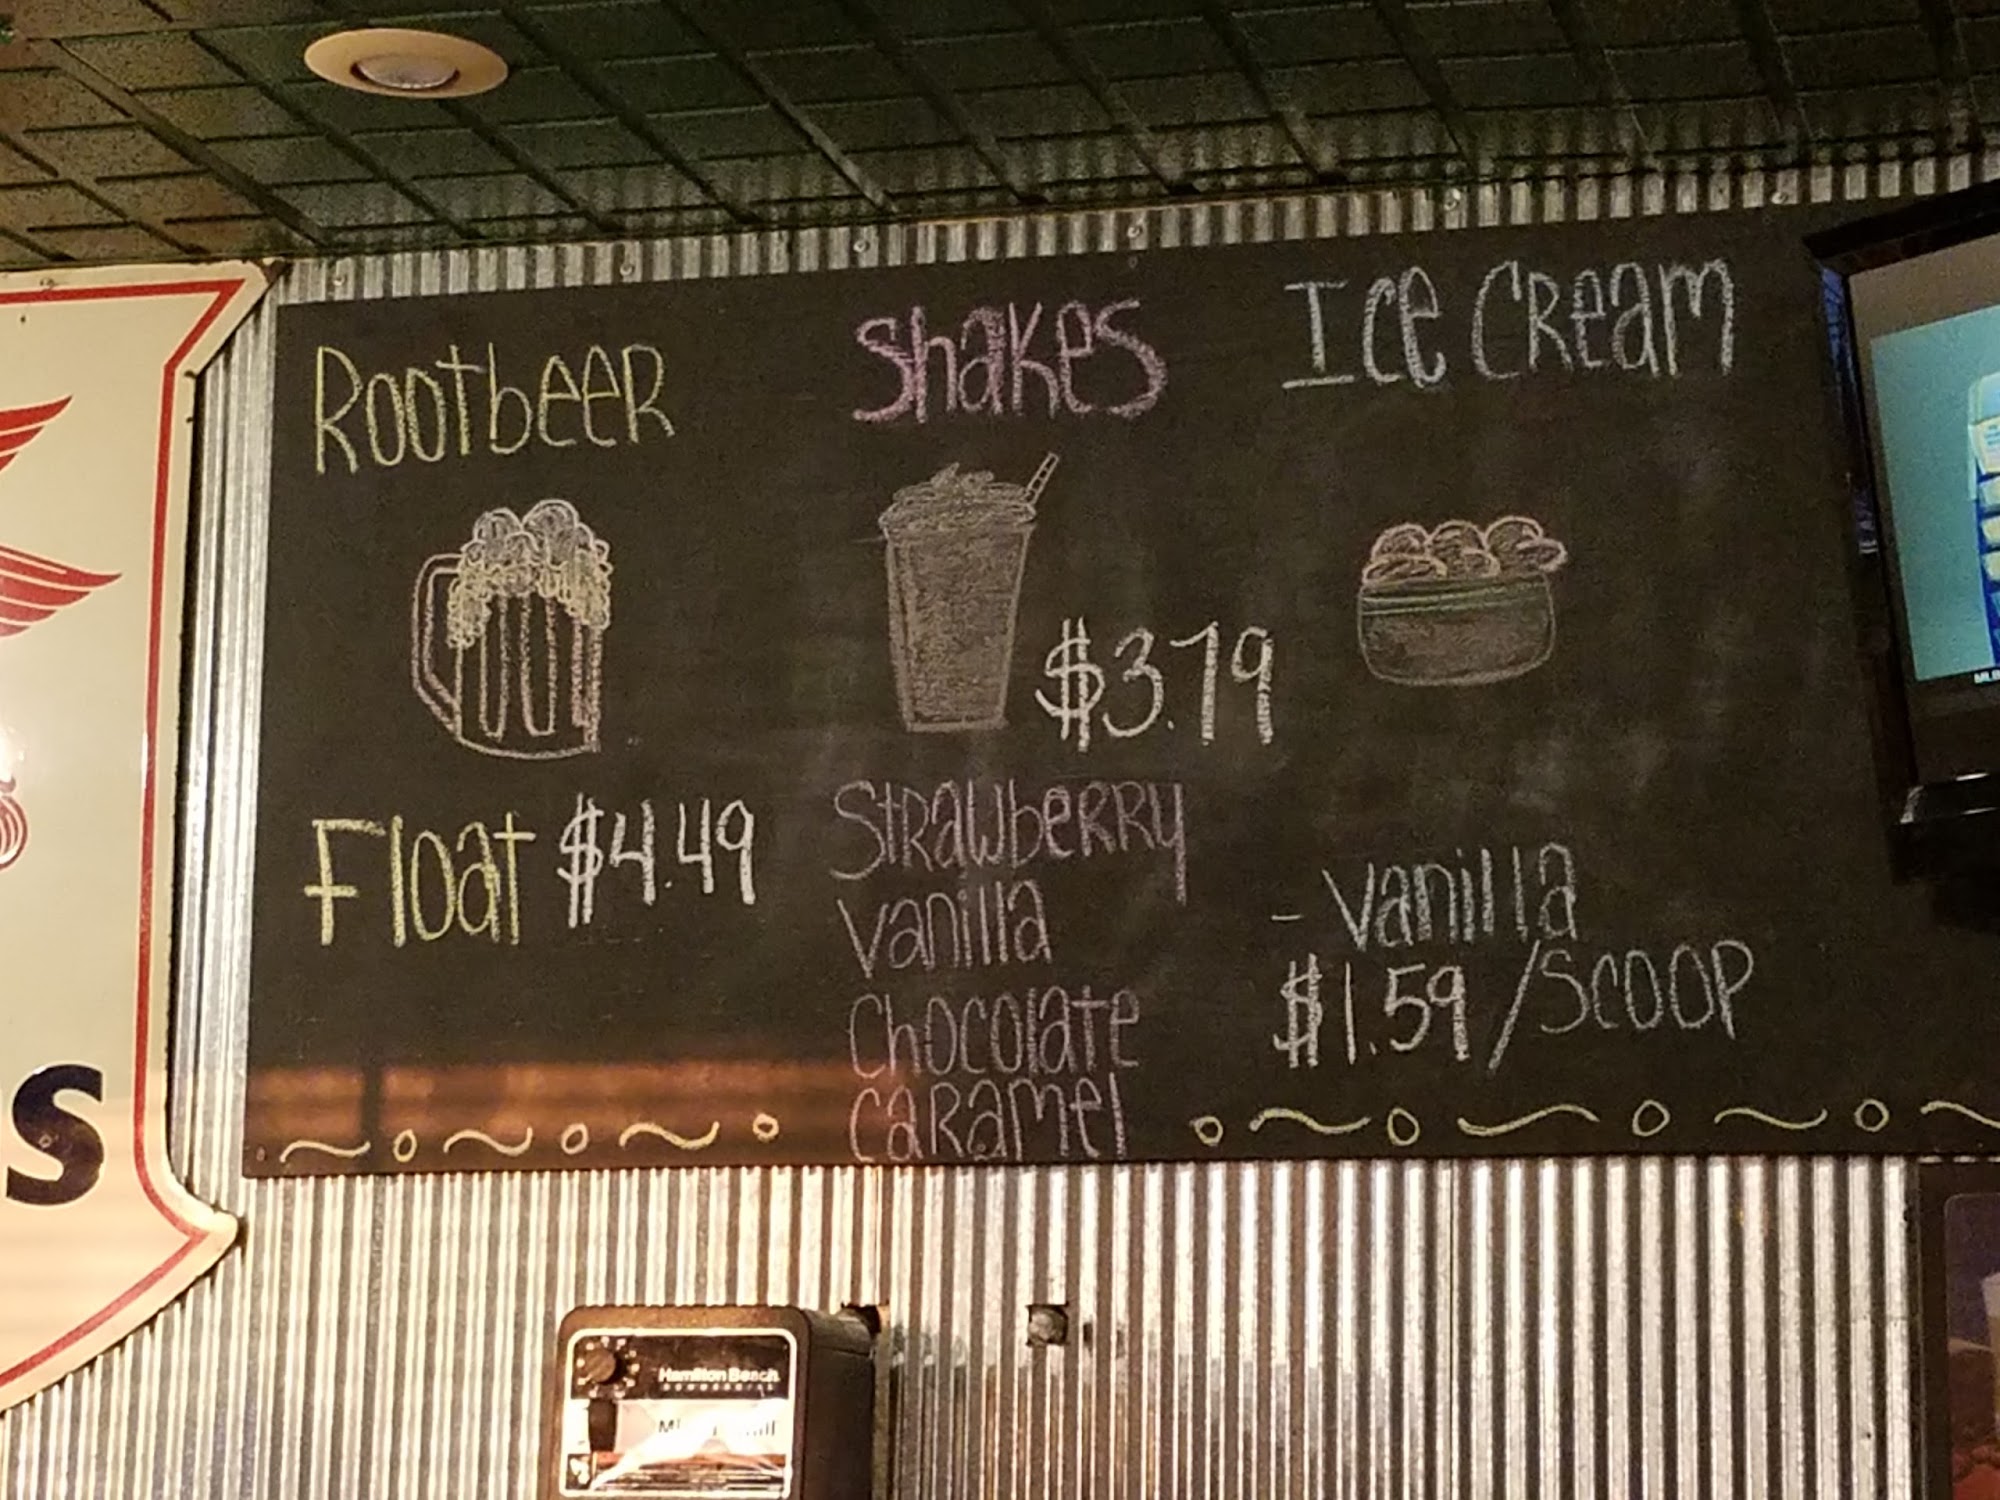 Rootbeer
Float $4.49
Shakes
$3.79
Strawberry
Vanilla
Chocolate
Caramel
Ice Cream
- Vanilla
$1.59 /Scoop
S
Hamilton Beach
COMMERCIAL
MLB